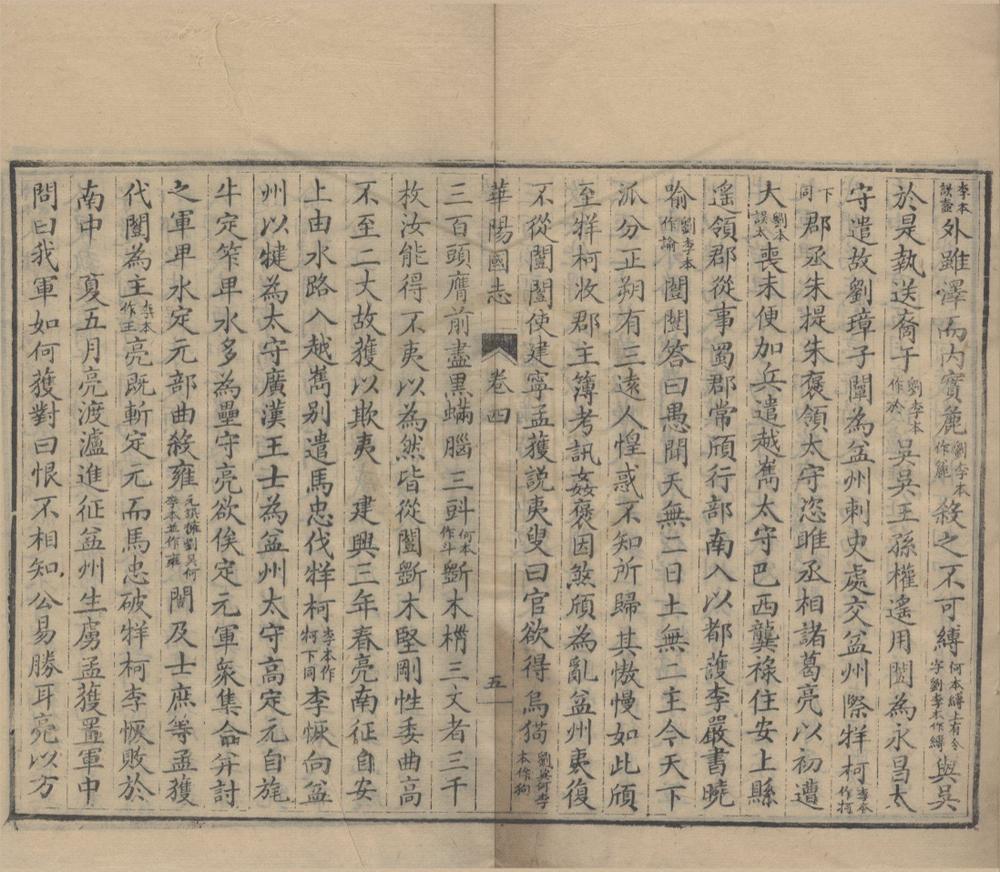 李本誤盡外雖澤而內實麄劉李本作麤殺之不可縛何本縛上有令字劉李本作縛與吳
於是執送裔于劉李本作於吳吳王孫權遙用闓為永昌太
守遣故劉璋子闡為益州刺史處交益州際牂柯李本作柯
下同郡丞朱提朱褒領太守恣睢丞相諸葛亮以初遭
大劉本誤太喪未便加兵遣越嶲太守巴西龔祿住安上縣
遙領郡從事蜀郡常頎行部南入以都護李嚴書曉
喻劉李本作諭闓闓答曰愚聞天無二日土無二主今天下
派分正朔有三遠人惶惑不知所歸其慠慢如此頎
至牂柯收郡主簿考訊姦褒因煞頎為亂益州夷復
不從闓闓使建寧孟獲說夷叟曰官欲得烏猫劉吳何李本作狗
華陽國志 卷四 五
三百頭膺前盡黑蟎腦三㪷何本作斗斵木構三丈者三千
枚汝能得不夷以為然皆從闓斵木堅剛性委曲高
不至二丈故獲以欺夷 建興三年春亮南征自安
上由水路入越嶲别遣馬忠伐牂柯李本作牁下同李恢向益
州以犍為太守廣漢王士為益州太守高定元自旄
牛定笮卑水多為壘守亮欲俟定元軍衆集合并討
之軍卑水定元部曲殺雍元誤雝劉吳何李本並作雍闓及士庶等孟獲
代闓為主李本作王亮既斬定元而馬忠破牂柯李恢敗於
南中 夏五月亮渡瀘進征益州生虜孟獲置軍中
問曰我軍如何獲對曰恨不相知公易勝耳亮以方